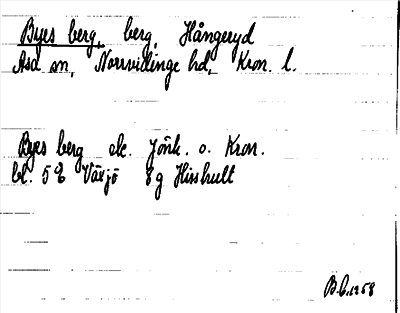 Byes berg, berg, Hångeryd
Asa sn, Norrvidinge hd, Kron. l.
Byes berg ek. Jönk. o. Kron.
bl. 5E Växjö 8g Hisshult
B.L. 1958